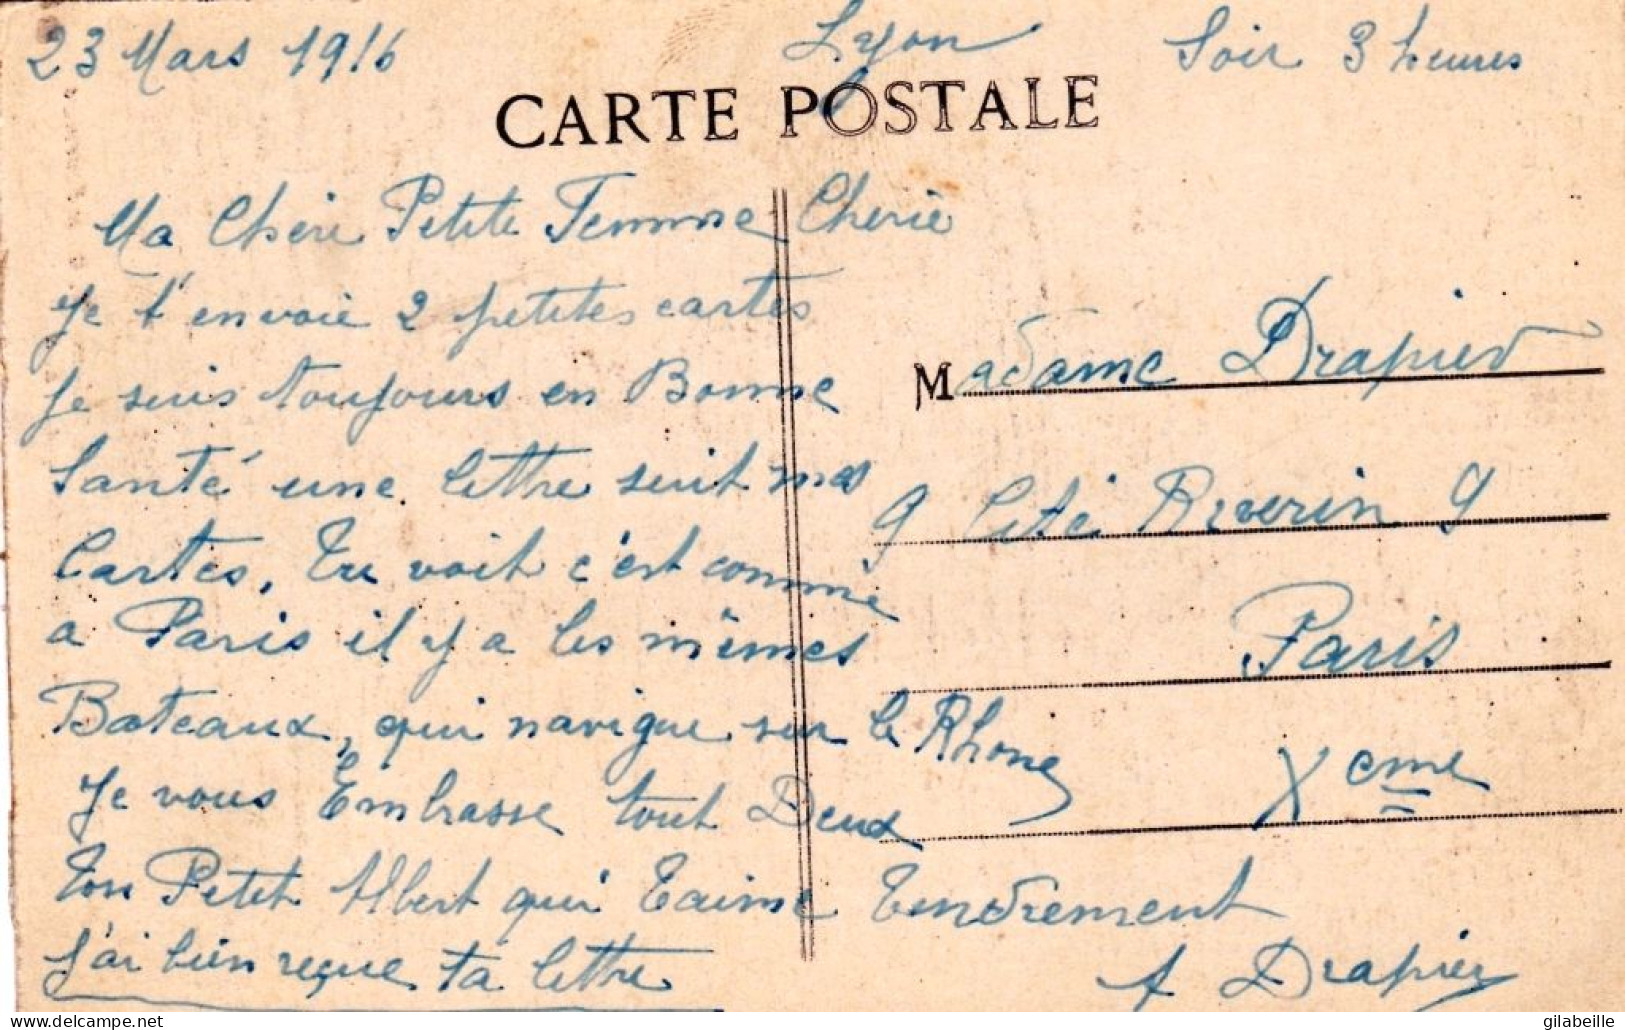 23 Mars 1916 Lyon Soir 3 heures
CARTE POSTALE
Ma Chère Petite Femme Cherie
Je t'envoie 2 petites cartes
Je suis toujours en Bonne
Santé une lettre suit mes
Cartes, Tu voit c'est comme
a Paris il y a les mêmes
Bateaux, qui navigue sur le Rhone
Je vous Embrasse tout Deux
Ton Petit Albert qui t'aime tendrement
J'ai bien reçue ta lettre
A Drapier
Madame Drapier
9 Cité Riverin 9
Paris
Xeme
gilabeille
delcampe.net